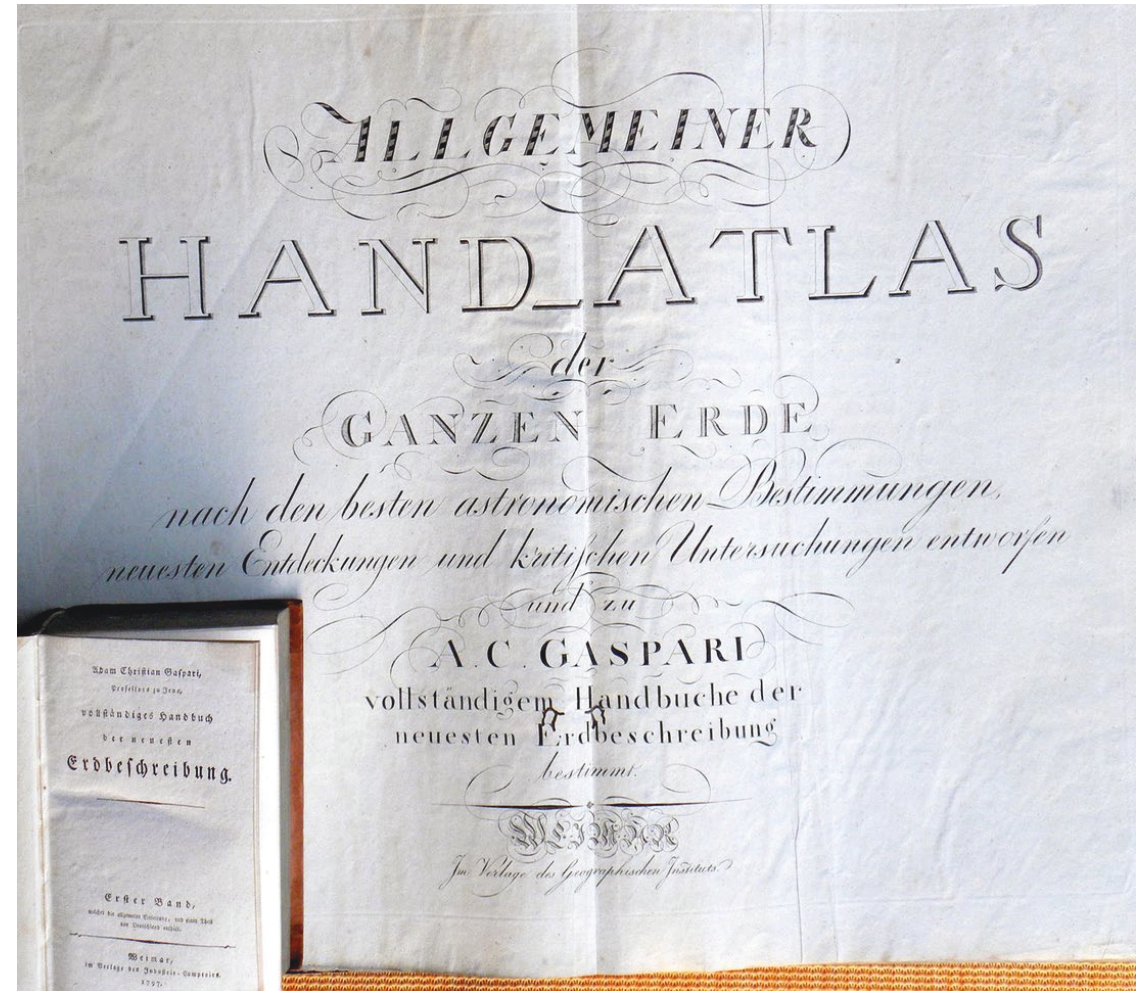 ALLGEMEINER
HAND_ATLAS
der
GANZEN ERDE
nach den besten astronomischen Bestimmungen,
neuesten Entdeckungen und kritiſchen Untersuchungen entworfen
und zu
A. C. GASPARI
vollständigem Handbuche der
neuesten Erdbeschreibung
bestimmt.
WEIMAR
Im Verlage des Geographischen Instituts.
Adam Chriſtian Gaſpari,
Profeſſors zu Jena,
vollſtändiges Handbuch
der neueſten
Erdbeſchreibung.
Erſter Band,
welcher die allgemeine Einleitung, und einen Theil
von Deutſchland enthält.
Weimar,
im Verlage des Induſtrie-Comptoirs.
1797.